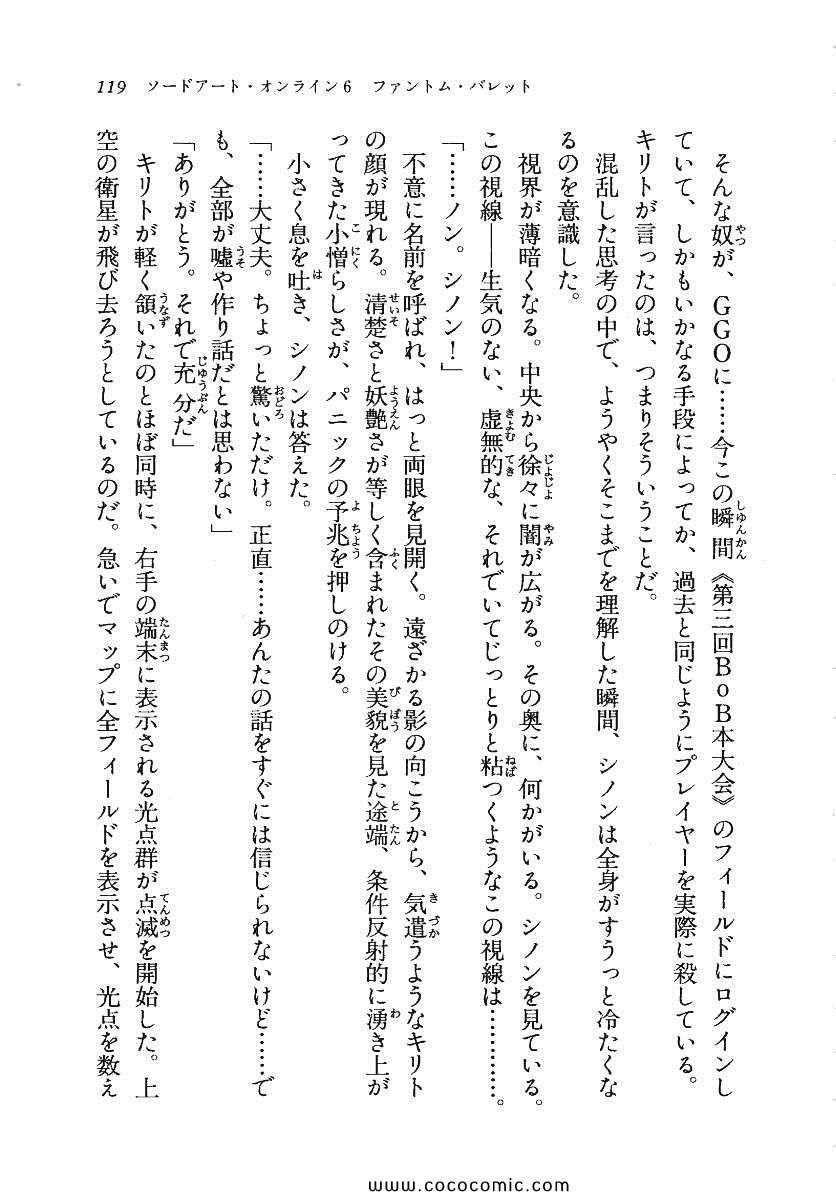 119　ソードアート・オンライン6　ファントム・バレット
そんな奴が、GGOに……今この瞬間《第三回BoB本大会》のフィールドにログインし
ていて、しかもいかなる手段によってか、過去と同じようにプレイヤーを実際に殺している。
キリトが言ったのは、つまりそういうことだ。
混乱した思考の中で、ようやくそこまでを理解した瞬間、シノンは全身がすうっと冷たくな
るのを意識した。
視界が薄暗くなる。中央から徐々に闇が広がる。その奥に、何かがいる。シノンを見ている。
この視線――生気のない、虚無的な、それでいてじっとりと粘つくようなこの視線は…………。
「……ノン。シノン！」
不意に名前を呼ばれ、はっと両眼を見開く。遠ざかる影の向こうから、気遣うようなキリト
の顔が現れる。清楚さと妖艶さが等しく含まれたその美貌を見た途端、条件反射的に湧き上が
ってきた小憎らしさが、パニックの予兆を押しのける。
小さく息を吐き、シノンは答えた。
「……大丈夫。ちょっと驚いただけ。正直……あんたの話をすぐには信じられないけど……で
も、全部が嘘や作り話だとは思わない」
「ありがとう。それで充分だ」
キリトが軽く頷いたのとほぼ同時に、右手の端末に表示される光点群が点滅を開始した。上
空の衛星が飛び去ろうとしているのだ。急いでマップに全フィールドを表示させ、光点を数え
www.cococomic.com